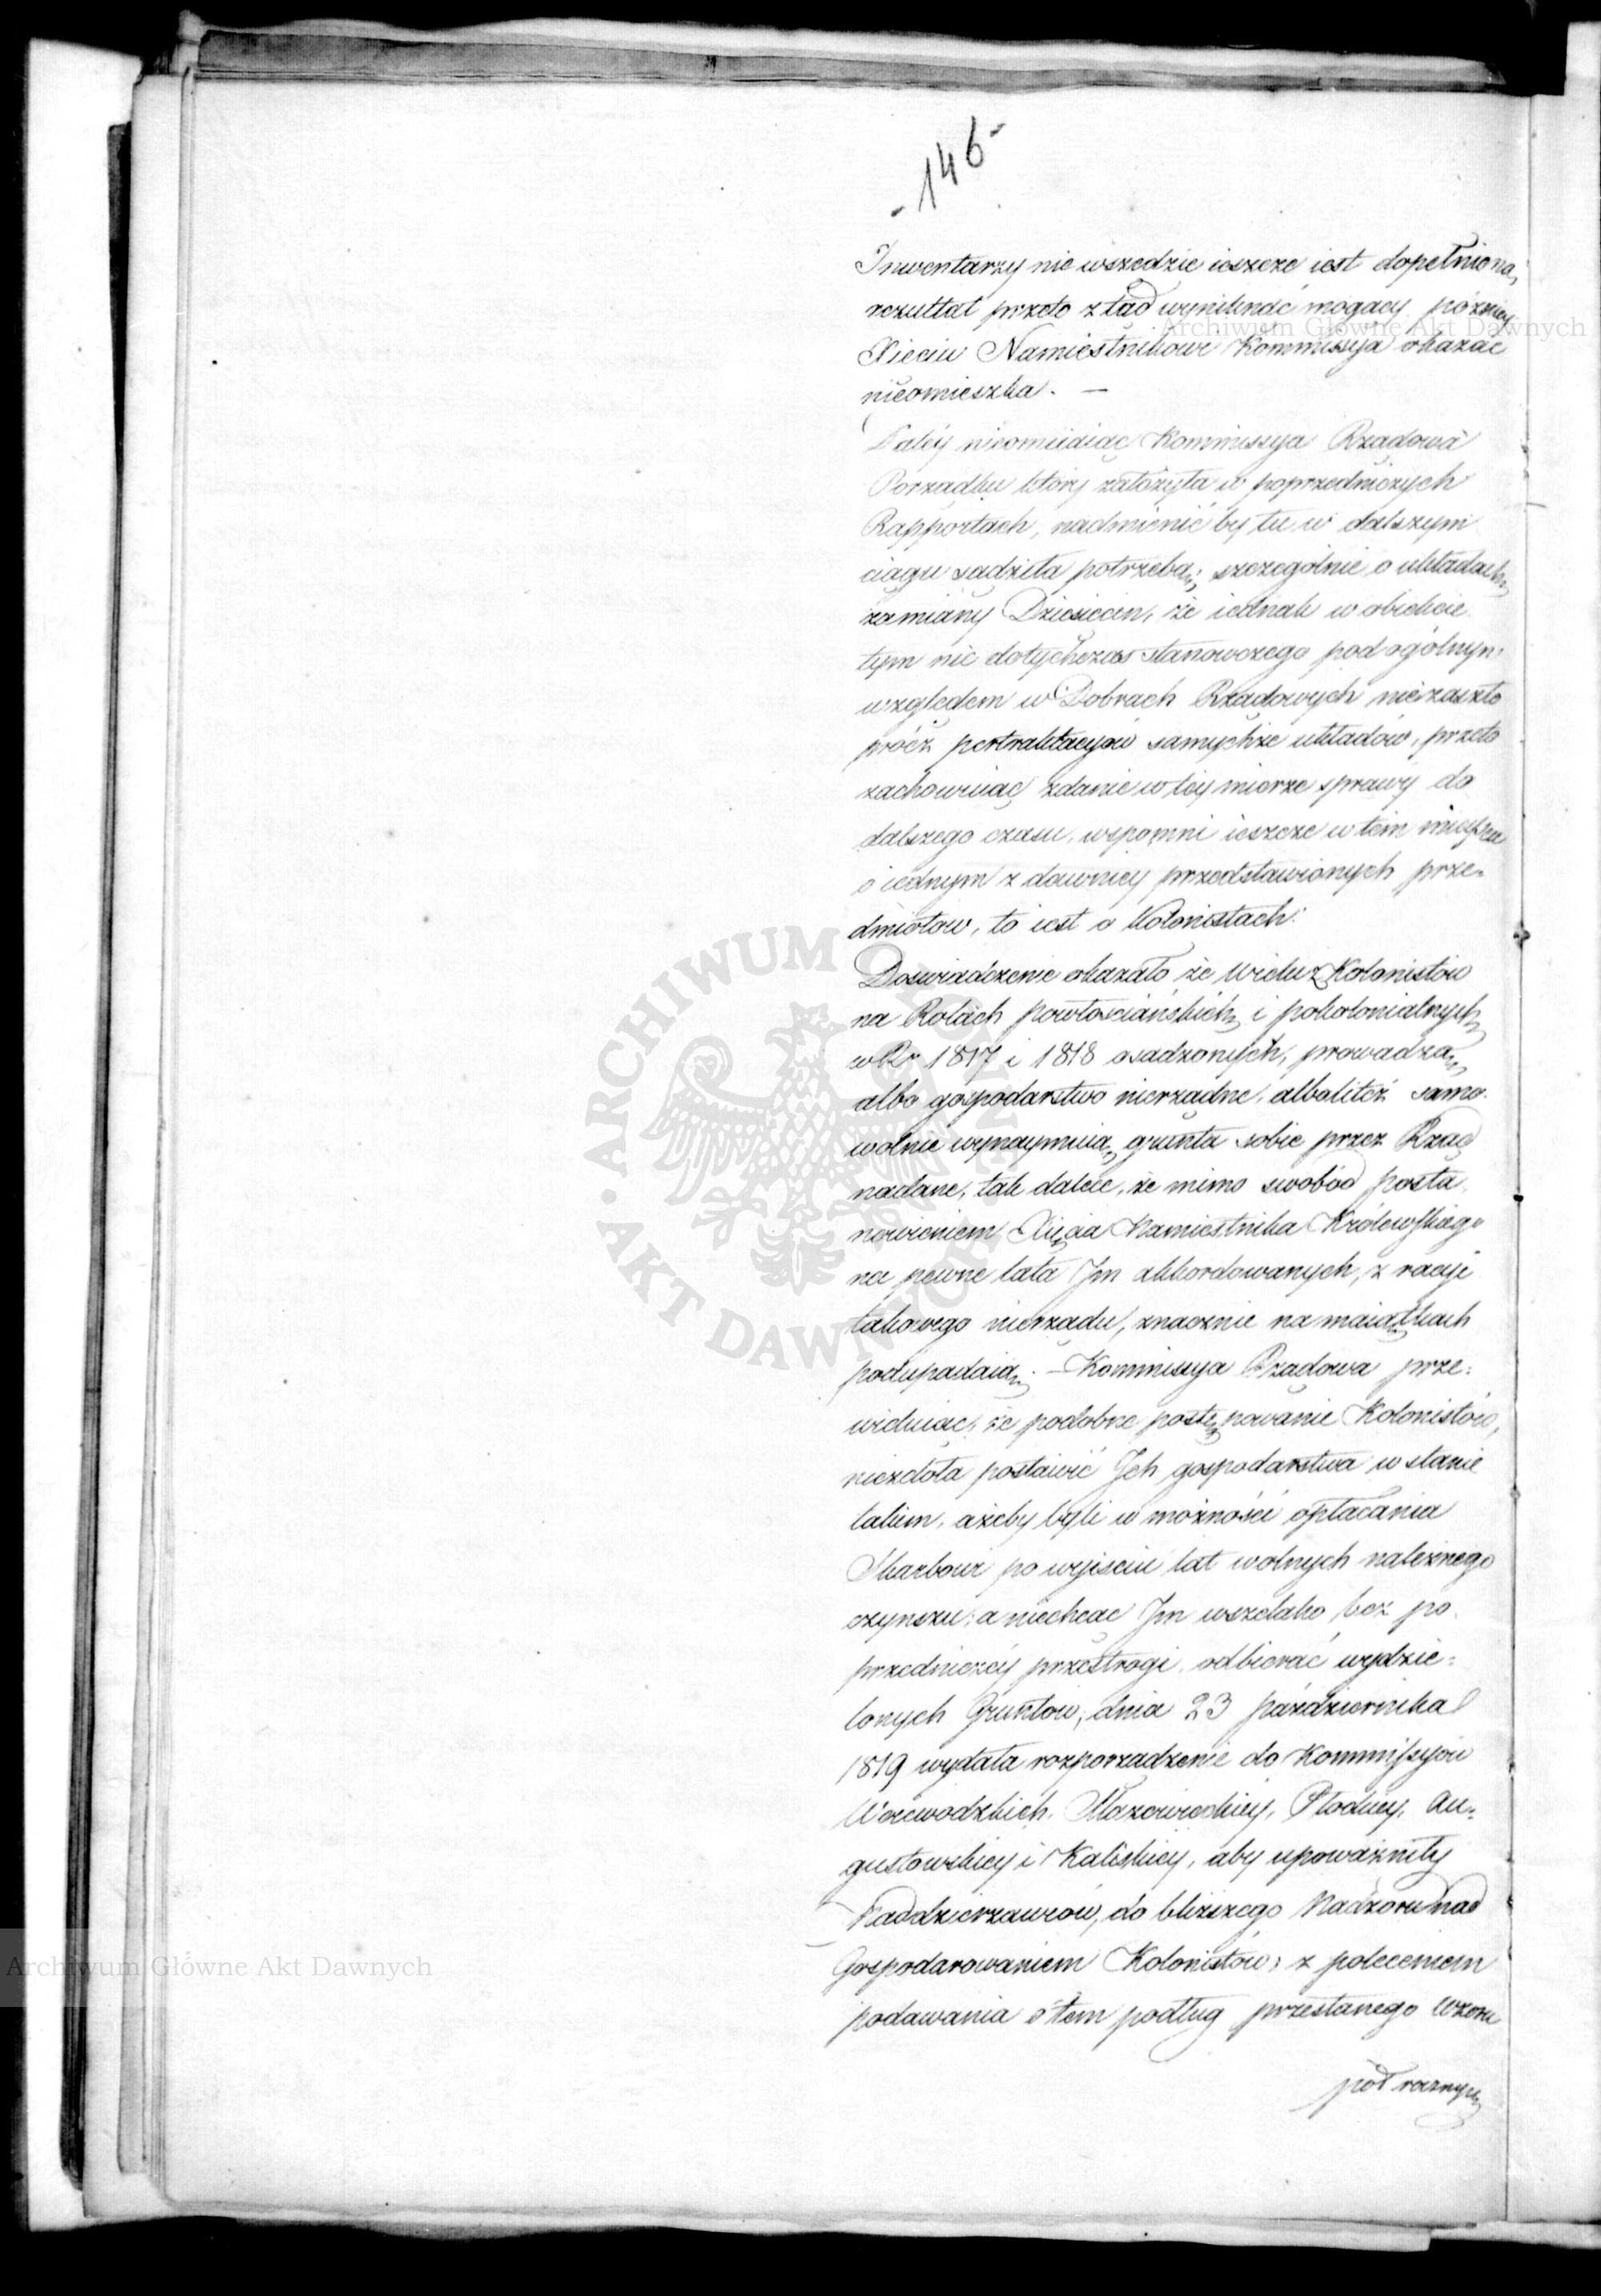 - 146 -
Inwentarzy nie wszędzie ieszcze iest dopełniona,
rezultat przeto ztąd wyniknąć mogący późniey
Xięciu Namiestnikowi Kommissyja okazać
nieomieszka. —
Daléy nieomiiaiąc Kommissya Rządowa
Porządku który założyła w poprzedniczych
Rapportach, nadmienić by tu w dalszym
ciągu sądziła potrzebą; szczególnie o układach
zamiany Dziesięcin, że iednak w obiekcie
tym nic dotychczas stanowczego pod ogólnym
względem w Dobrach Rządowych niezaszło
prócz pertraktacyów samychże układów, przeto
zachowuiąc zdanie w téy mierze sprawy do
dalszego czasu, wspomni ieszcze w tém mieyscu
o iednym z dawniey przedstawionych prze-
dmiotow, to iest o Kolonistach:
Doswiadczenie okazało że wielu z Kolonistów
na Rolach powłosciańskich i pokolonialnych
w Rr 1817 i 1818 osadzonych, prowadzą
albo gospodarstwo nierządne, albolitéż samo-
wolnie wynaymuią grunta sobie przez Rząd
nadane, tak dalece, że mimo swobód posta-
nowieniem Xięcia Namiestnika Królewskiego
na pewne lata Jm akkordowanych, z racyi
takowego nierządu, znacznie na maiątkach
podupadaią. — Kommissya Rządowa prze-
widuiąc, że podobne postępowanie Kolonistów,
niezdoła postawić Jch gospodarstwa w stanie
takim, ażeby byli w możności opłacania
Skarbowi po wyjsciu lat wolnych należnego
czynszu; a niechcąc Jm wszelako bez po-
przedniczéy przestrogi odbierać wydzie-
lonych Gruntow, dnia 23 października
1819 wydała rozporządzenie do Kommissyów
Woiewodzkich, Mazowieckiey, Płockiey, Au-
gustowskiey i Kaliskiey, aby upoważniły
Naddzierzawców, do bliższego Nadzoru nad
Gospodarowaniem Kolonistów, z poleceniem
podawania o tem podług przesłanego wzoru
pół rocznych
Archiwum Główne Akt Dawnych
Archiwum Główne Akt Dawnych